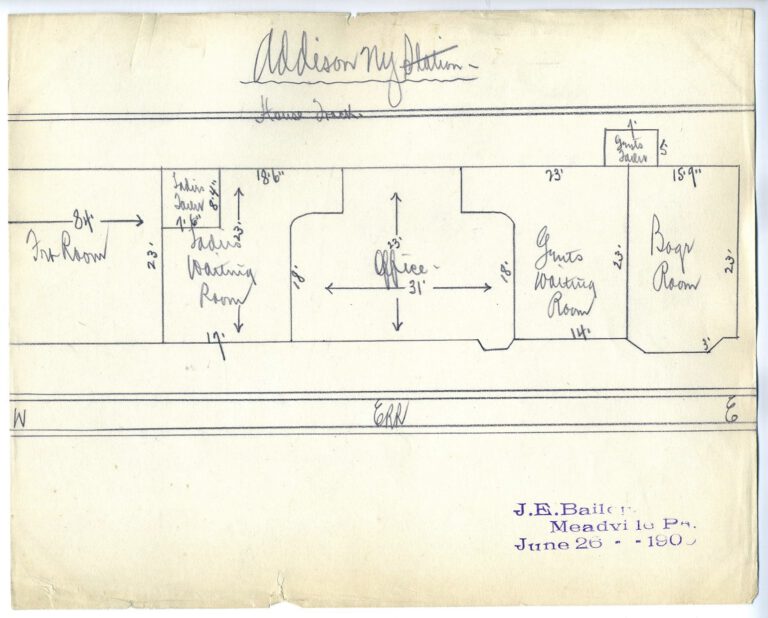 Addison NY Station -
House Track
7'
Gents
Toilet
5'
Ladies
Toilet
8'4"
7'6"
18'6"
23'
15'9"
84'
Frt Room
23'
23'
Ladies
Waiting
Room
17'
18'
23'
Office -
31'
18'
Gents
Waiting
Room
14'
23'
Bagg
Room
23'
3'
W
ERR
E
J.E.Baile
Meadville Pa.
June 26 - - 190